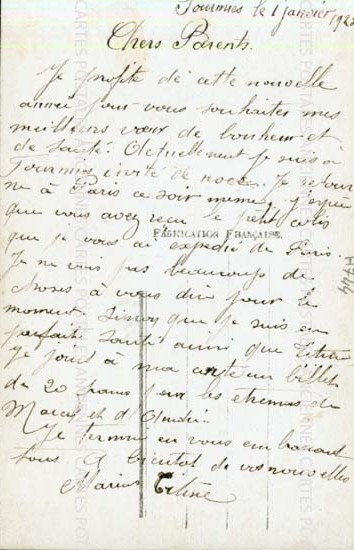 Tournus le 1 janvier 192
Chers Parents.
Je profite de cette nouvelle
année pour vous souhaiter mes
meilleurs vœux de bonheur et
de santé. Actuellement je suis à
Tournus invité de noce. Je retour
ne à Paris ce soir meme. J'espère
que vous avez reçu le petit colis
FABRICATION FRANÇAISE
que je vous ai expedié de Paris.
Je ne vois pas beaucoup de
choses à vous dire pour le
moment. Sinon que je suis en
parfaite santé ainsi que Titine
Je joins à ma carte un billet
de 20 francs pour les étrennes de
Marcel et d'André.
Je termine en vous embrassant
tous. A bientot de vos nouvelles
Marius Titine
H744